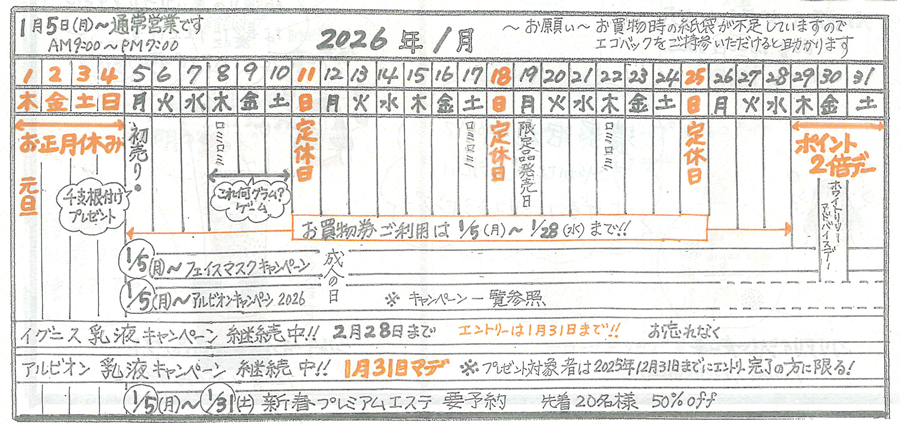 1月5日(月)〜通常営業です
AM9:00〜PM7:00
2026年1月
〜お願い〜お買物時の紙袋が不足していますので
エコバックをご持参いただけると助かります
1 2 3 4 5 6 7 8 9 10 11 12 13 14 15 16 17 18 19 20 21 22 23 24 25 26 27 28 29 30 31
木 金 土 日 月 火 水 木 金 土 日 月 火 水 木 金 土 日 月 火 水 木 金 土 日 月 火 水 木 金 土
お正月休み
元旦
初売り。
干支根付け
プレゼント
ロミロミ
これ何グラム?
ゲーム
定休日
成人の日
ロミロミ
定休日
限定品発売日
ロミロミ
定休日
ポイント
2倍デー
ホワイトリリー
アドバイスデー
お買物券ご利用は1/5(月)〜1/28(水)まで!!
1/5(月)〜フェイスマスクキャンペーン
1/5(月)〜アルビオンキャンペーン2026 ※キャンペーン一覧参照
イグニス 乳液キャンペーン 継続中!! 2月28日まで エントリーは1月31日まで!! お忘れなく
アルビオン 乳液キャンペーン 継続中!! 1月31日マデ ※プレゼント対象者は2025年12月31日までにエントリー完了の方に限る!
1/5(月)〜1/31(土) 新春プレミアムエステ 要予約 先着20名様 50%off